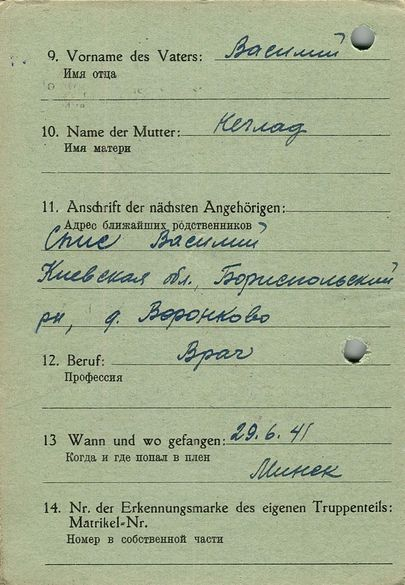 9. Vorname des Vaters: Василий
Имя отца
10. Name der Mutter:
Имя матери
11. Anschrift der nächsten Angehörigen:
Адрес ближайших родственников
Спис Василий
Киевская обл., Бориспольский
рн, д. Воронково
12. Beruf: Врач
Профессия
13 Wann und wo gefangen: 29.6.41
Когда и где попал в плен
Минск
14. Nr. der Erkennungsmarke des eigenen Truppenteils:
Matrikel-Nr.
Номер в собственной части